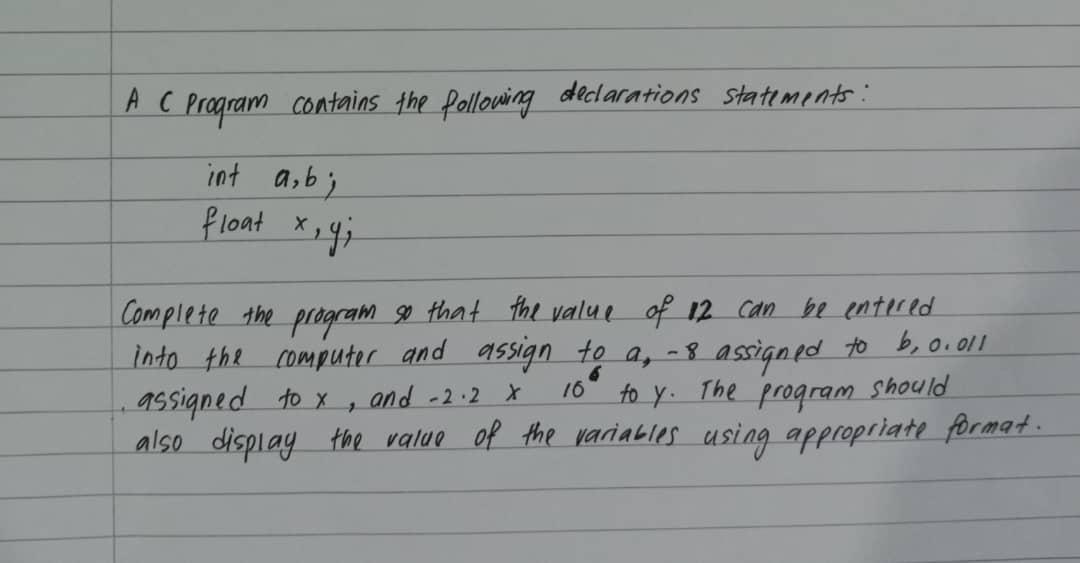 A C Program contains the following declarations statements:
int a,b;
float x,y;
Complete the program so that the value of 12 can be entered
into the computer and assign to a, -8 assigned to b, 0.011
assigned to x, and -2.2 x 10⁶ to y. The program should
also display the value of the variables using appropriate format.